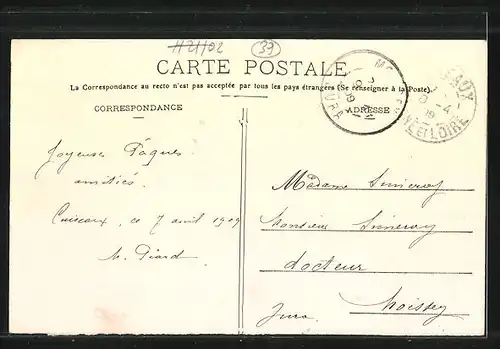 H21102
39
CARTE POSTALE
La Correspondance au recto n'est pas acceptée par tous les pays étrangers (Se renseigner à la Poste).
CORRESPONDANCE
ADRESSE
Joyeuses Pâques
amitiés
Cuiseaux, ce 7 avril 1909
Madame
Monsieur
docteur
Moissey
Jura
ET LOIRE